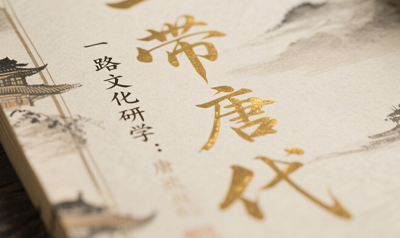 一带唐代
一路文化研学：